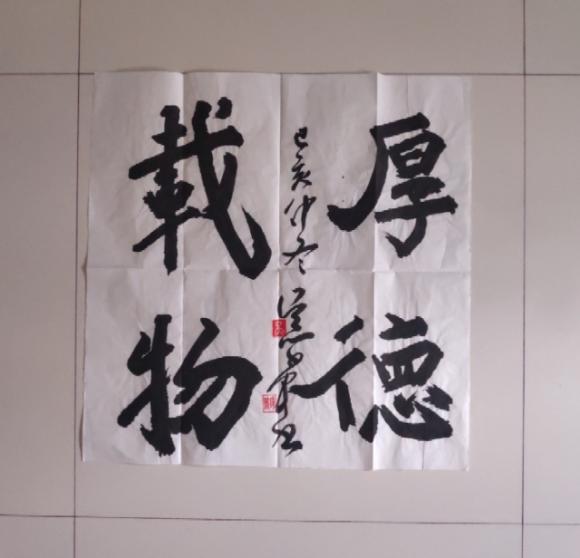 厚德
載物
己亥仲冬